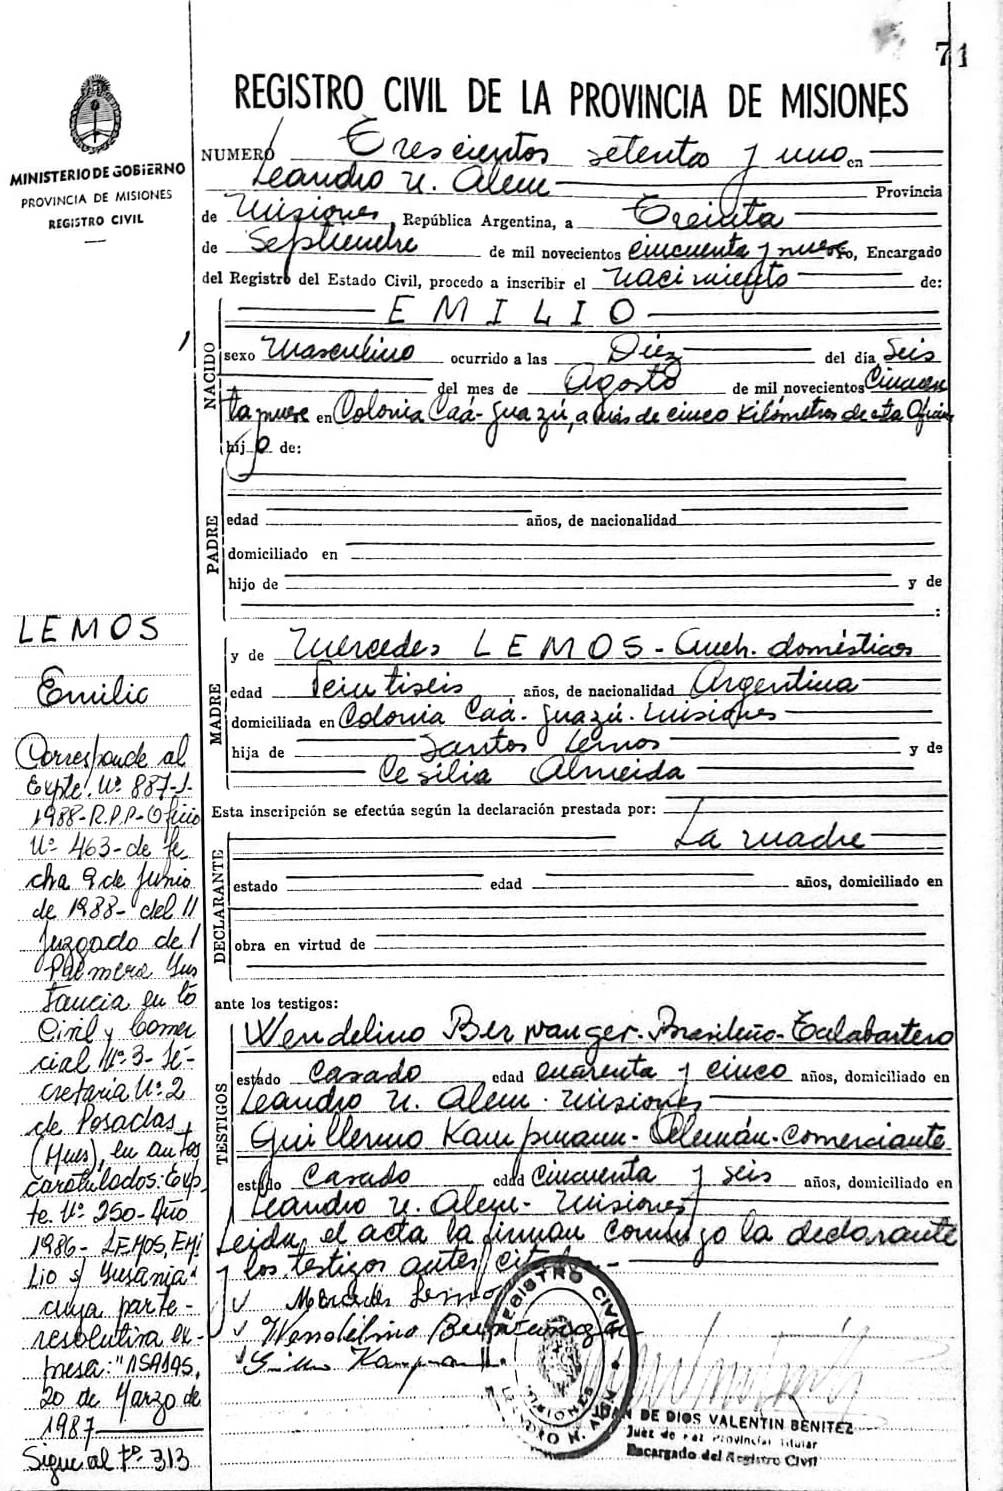 71
MINISTERIO DE GOBIERNO
PROVINCIA DE MISIONES
REGISTRO CIVIL
REGISTRO CIVIL DE LA PROVINCIA DE MISIONES
NUMERO Trescientos setenta y uno en
Leandro N. Alem Provincia
de Misiones, República Argentina, a Treinta
de Septiembre de mil novecientos cincuenta y nueve, Encargado
del Registro del Estado Civil, procedo a inscribir el nacimiento de:
EMILIO
NACIDO
sexo Masculino ocurrido a las Diez del día Seis
del mes de Agosto de mil novecientos Cincuen
ta nueve en Colonia Caá-Guazú, a más de cinco kilómetros de esta Oficina
hijo de:
PADRE
edad años, de nacionalidad
domiciliado en
hijo de y de
:
MADRE
y de Mercedes LEMOS - Queh. domésticos
edad Veintiseis años, de nacionalidad Argentina
domiciliada en Colonia Caá-Guazú. Misiones
hija de Santos Lemos y de
Cesilia Almeida
Esta inscripción se efectúa según la declaración prestada por:
La madre
DECLARANTE
estado edad años, domiciliado en
obra en virtud de
ante los testigos:
TESTIGOS
Wendelino Berwanger - Brasileño - Talabartero
estado Casado edad cuarenta y cinco años, domiciliado en
Leandro N. Alem - Misiones
Guillermo Kampmann - Alemán - Comerciante
estado Casado edad cincuenta y seis años, domiciliado en
Leandro N. Alem - Misiones
Leida el acta la firman conmigo la declarante
y los testigos antes cit
Mercedes Lemos
Wendelino Berwanger
Kampmann
REGISTRO CIVIL
MISIONES
LEANDRO N. ALEM
JUAN DE DIOS VALENTIN BENITEZ
Juez de Paz Provincial Titular
Encargado del Registro Civil
LEMOS
Emilio
Corresponde al
Expte. Nº 887-L-
1988-R.P.P.-Oficio
Nº 463-de fe
cha 9 de Junio
de 1988- del
Juzgado de
Primera Ins
tancia en lo
Civil y Comer
cial Nº 3- Se-
cretaria Nº 2
de Posadas
(Mnes), en autos
caratulados: Exp
te. Nº 250-Año
1986- LEMOS, EMI
LIO s/ Insania"
cuya parte-
resolutiva ex-
presa: "POSADAS,
20 de Marzo de
1987
Sigue al Fº 313